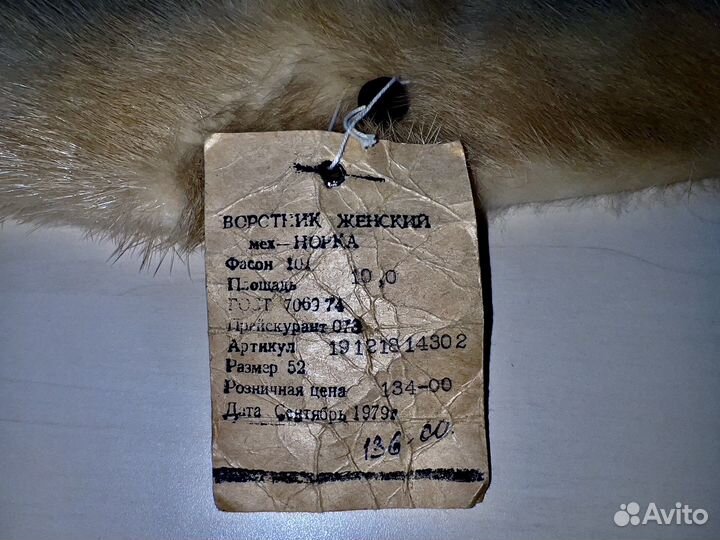 ВОРОТНИК ЖЕНСКИЙ
мех—НОРКА
Фасон 101
Площадь 10,0
ГОСТ 7069 74
Прейскурант 073
Артикул 19121814302
Размер 52
Розничная цена 134-00
Дата Сентябрь 1979г
136-00
Avito